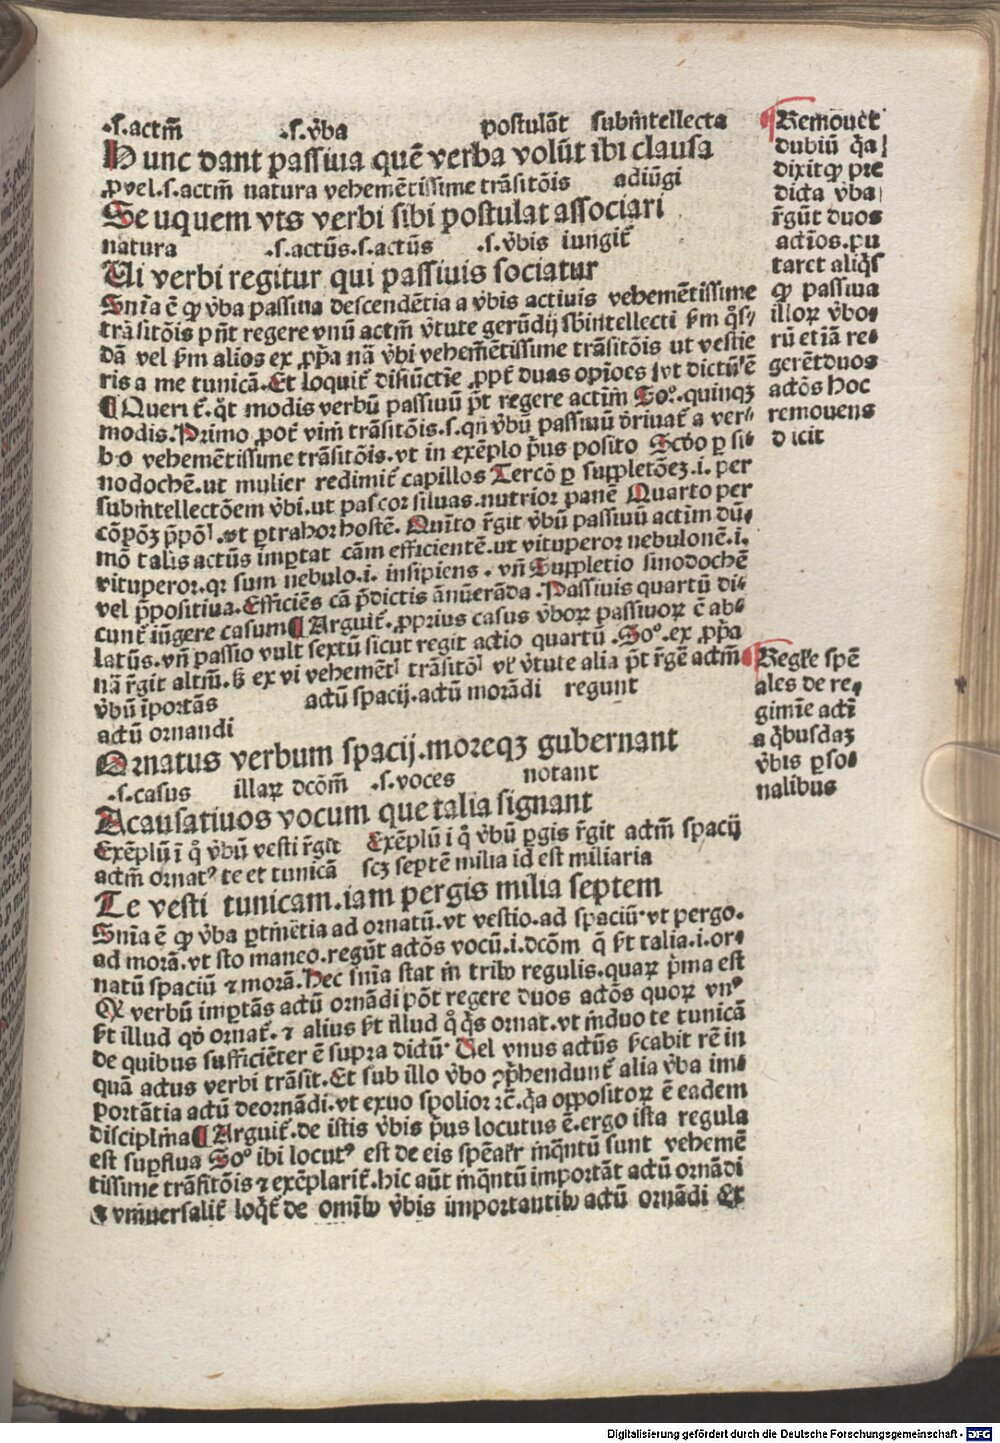 .s.actm̄ .s.v̄ba postulāt subītellecta
Hunc dant passiua quē verba volūt ibi clausa
ꝓ vel .s. actm̄ natura vehemētissime trāsitōis adiūgi
Seu quem vts verbi sibi postulat associari
natura .s.actūs.s.actūs .s.v̄bis iungit᷑
Ui verbi regitur qui passiuis sociatur
Snīa ē ꝙ v̄ba passiua descendētia a v̄bis actiuis vehemētissime
trāsitōis pn̄t regere vnū actm̄ v̄tute gerūdij sb̄intellecti ẜm qͦs⸗
dā vel ẜm alios ex ꝓp̄a nā v̄bi vehemētissime trāsitōis ut vestie
ris a me tunicā. Et loquit᷑ disiūctīe ꝓpt᷑ duas opīoes ut dictū ē
¶ Querit᷑. qͦt modis verbū passiuū pt̄ regere actīm Soꝰ. quinqꝫ
modis. Primo ꝓpt᷑ vim̄ trāsitōis .s. qn̄ v̄bū passiuū d̄riuat᷑ a ver⸗
bo vehemētissime trāsitōis. vt in exēplo pͥus posito Scd̄o ꝑ si⸗
nodochē. ut mulier redimit᷑ capillos Tercō ꝑ suppletōeꝫ .i. per
subītellectōem v̄bi. ut pascor siluas. nutrior panē Quarto per
cōpōꝫ p̄pōl̄. vt ꝑtrahor hostē. Quīto r̄git v̄bū passiuū actīm dū⸗
mō talis actūs īmp̄tat cām efficientē. ut vituperor nebulonē .i.
vituperor. qꝛ sum nebulo .i. insipiens. vn̄ Suppletio sinodochē
vel p̄positiua. Efficiēs cā p̄dictis ānūerāda. Passiuis quartū di⸗
cunt᷑ iūgere casum ¶ Arguit᷑. ꝓprius casus v̄boꝝ passiuoꝝ ē ab⸗
latūs. vn̄ passio vult sextū sicut regit actio quartū. Soꝰ. ex ꝓp̄a
nā r̄git altm̄. ẜ ex vi vehemēt᷑ trāsitō᷑ vl̄ v̄tute alia pt̄ r̄gē actm̄
v̄bū īportās actū spacij. actū morādi regunt
actū ornandi
Ornatus verbum spacij. moreqꝫ gubernant
.s.casus illaꝝ dcōm̄ .s.voces notant
Acausatiuos vocum que talia signant
Exēplū ī qͦ v̄bū vesti r̄git Exēplū i qͦ v̄bū ꝑgis r̄git actm̄ spacij
actm̄ ornatꝰ te et tunicā scꝫ septē milia id est miliaria
Te vesti tunicam. iam pergis milia septem
Snīa ē ꝙ v̄ba ꝑtinētia ad ornatū. vt vestio. ad spaciū. vt pergo.
ad morā. vt sto maneo. regūt actōs vocū .i. dcōm̄ q̄ ẜt talia .i. or⸗
natū spaciū ⁊ morā. Hec snīa stat in tribꝰ regulis. quaꝝ pͥma est
Qꝙ verbū imp̄tās actū ornādi pōt regere duos actōs quoꝝ vnꝰ
ẜt illud qd̄ ornat᷑. ⁊ alius ẜt illud qͦ qͥs ornat. vt induo te tunicā
de quibus sufficiēter ē supra dictū. Uel vnus actūs ẜcabit rē in
quā actus verbi trāsit. Et sub illo v̄bo ꝯp̄hendunt᷑ alia v̄ba im⸗
portātia actū deornādi. vt exuo spolior ⁊c̄. qꝛ oppositoꝝ ē eadem
disciplīa ¶ Arguit᷑. de istis v̄bis pͥus locutus ē. ergo ista regula
est suꝑflua Soꝰ ibi locutꝰ est de eis spēalr̄ inqͣntū sunt vehemē
tissime trāsitōis ⁊ exēplarit᷑. hic aūt inqͣntū importāt actū ornādi
⁊ vniuersalit᷑ loqt᷑ de omībꝰ v̄bis importantibꝰ actū ornādi Et
¶ Remouet
dubiū qꝛ
dixit ꝙ pre
dicta v̄ba
r̄gūt duos
actīos. pu
taret aliqͥs
ꝙ passiua
illoꝝ v̄bo⸗
rū etiā re⸗
gerēt duos
actōs hoc
remouens
dicit
¶ Regle spē
ales de re⸗
gimīe actī
a qͥbusdaꝫ
v̄bis ꝑso⸗
nalibus
Digitalisierung gefördert durch die Deutsche Forschungsgemeinschaft - DFG